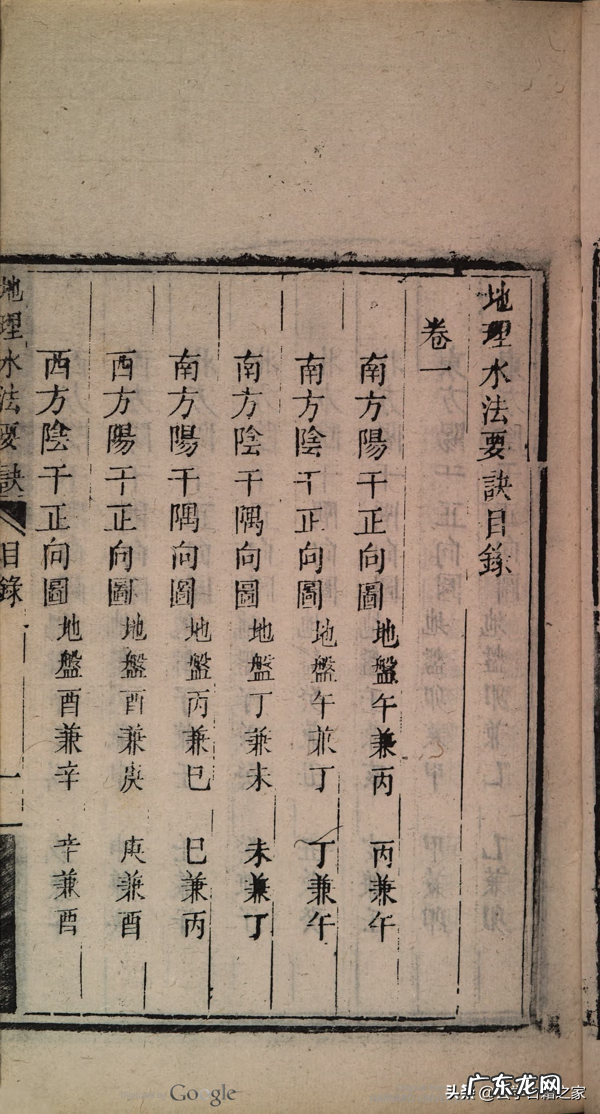 地理水法要訣目錄
卷一
南方陽干正向圖 地盤午兼丙 丙兼午
南方陰干正向圖 地盤午兼丁 丁兼午
南方陰干隅向圖 地盤丁兼未 未兼丁
南方陽干隅向圖 地盤丙兼巳 巳兼丙
西方陽干正向圖 地盤酉兼庚 庚兼酉
西方陰干正向圖 地盤酉兼辛 辛兼酉
地理水法要訣 目錄 一
Google
广东龙网
头条
之家